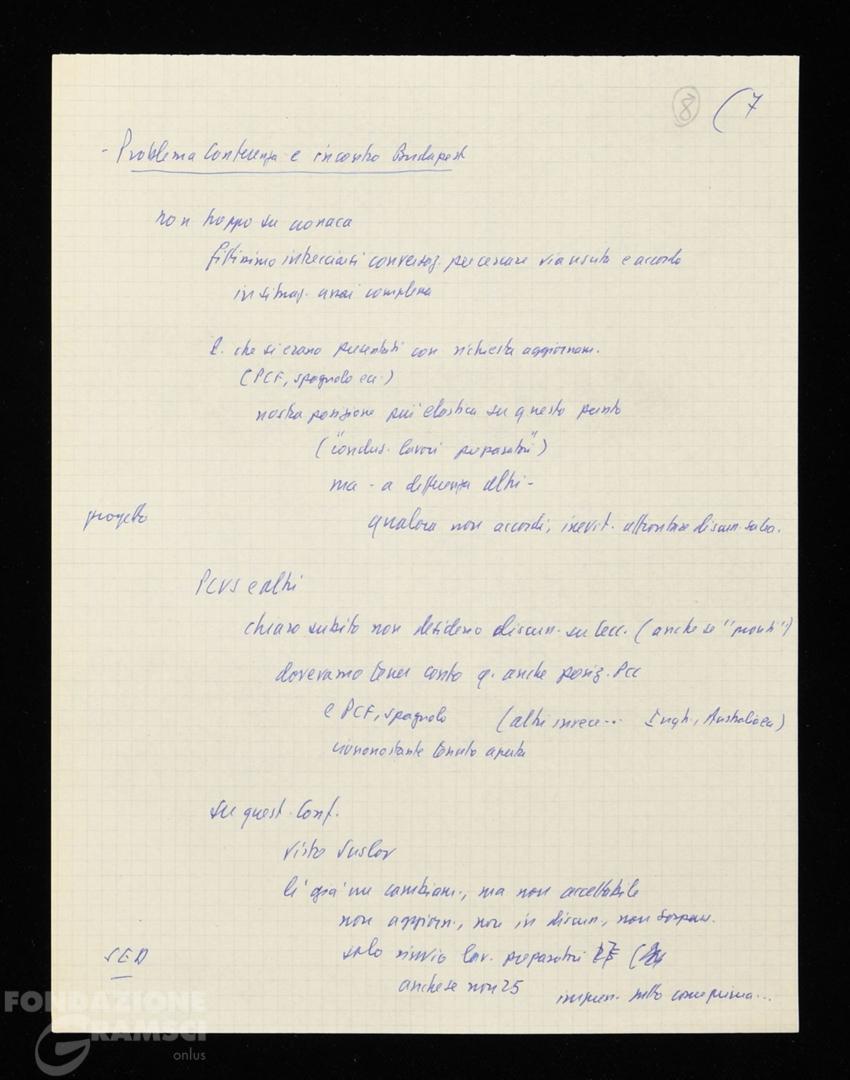 8 (7
- Problema Conferenza e incontro Budapest
non troppo su cronaca
fittissimo intrecciarsi conversaz. per cercare via uscita e accordo
in situaz. assai complessa
P. che si erano presentati con richiesta aggiornam.
(PCF, spagnolo ecc.)
nostra posizione più elastica su questo punto
("conclus. lavori preparatori")
ma - a differenza altri -
progetto
qualora non accordi, inevit. affrontare discuss. subo.
PCUS e altri
chiaro subito non desidero discuss. su Cecc. (anche se "pronti")
dovevamo tener conto q. anche posiz. Pcc
e PCF, spagnolo (altri invece... Ingh., Australia ecc)
ciononostante tenuto aperta
Su quest. Conf.
visto Suslov
lì già un cambiam., ma non accettabile
non aggiorn., non in discuss., non
SED
solo rinvio lav. preparatori
anche se non 25
impress. tutto come prima...
FONDAZIONE
GRAMSCI
onlus